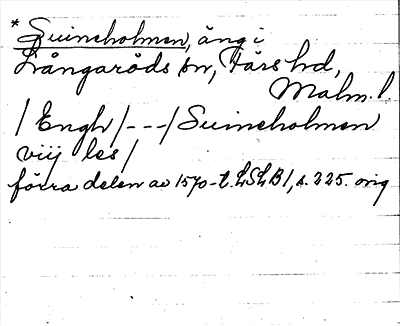 * Suineholmen, äng i
Långaröds sn, Färs hd,
Malm. l.
/ Engh / - - - / Suineholmen
viij les /
förra delen av 1570-t. LSLB 1, s. 225. orig